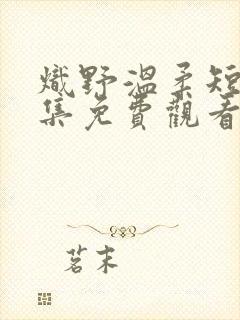 熾野溫柔短
集免費觀看
茗末